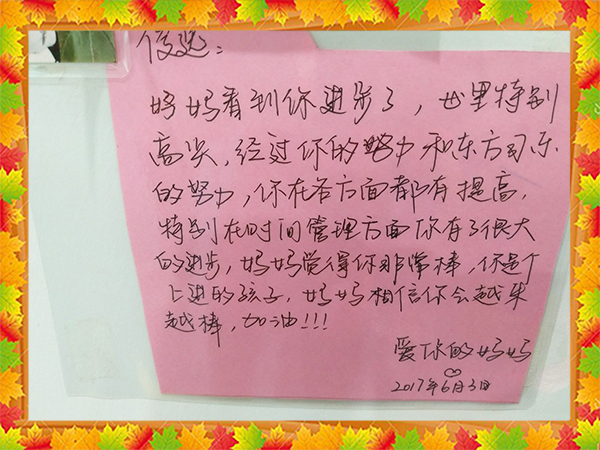 妈妈看到你进步了，心里特别
高兴，经过你的努力和东方
的努力，你在各方面都有提高，
特别在时间管理方面你有了很大
的进步，妈妈觉得你非常棒，你是个
上进的孩子，妈妈相信你会越来
越棒，加油!!!
爱你的妈妈
2017年6月3日